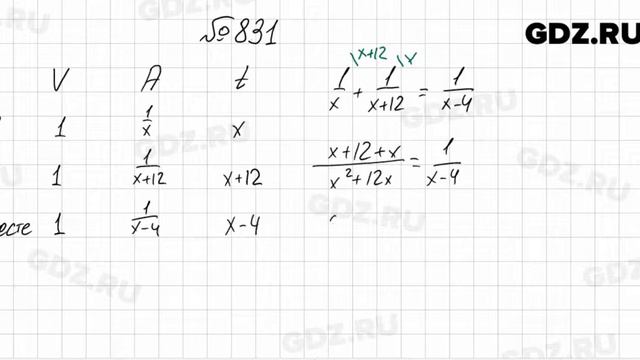 №831
GDZ.RU
V A t
1 1/x x
1 1/(x+12) x+12
есте 1 1/(x-4) x-4
\x+12 \x
1/x + 1/(x+12) = 1/(x-4)
(x+12+x)/(x²+12x) = 1/(x-4)
GDZ.RU
GDZ.RU
GDZ.RU
GDZ.RU
GDZ.RU